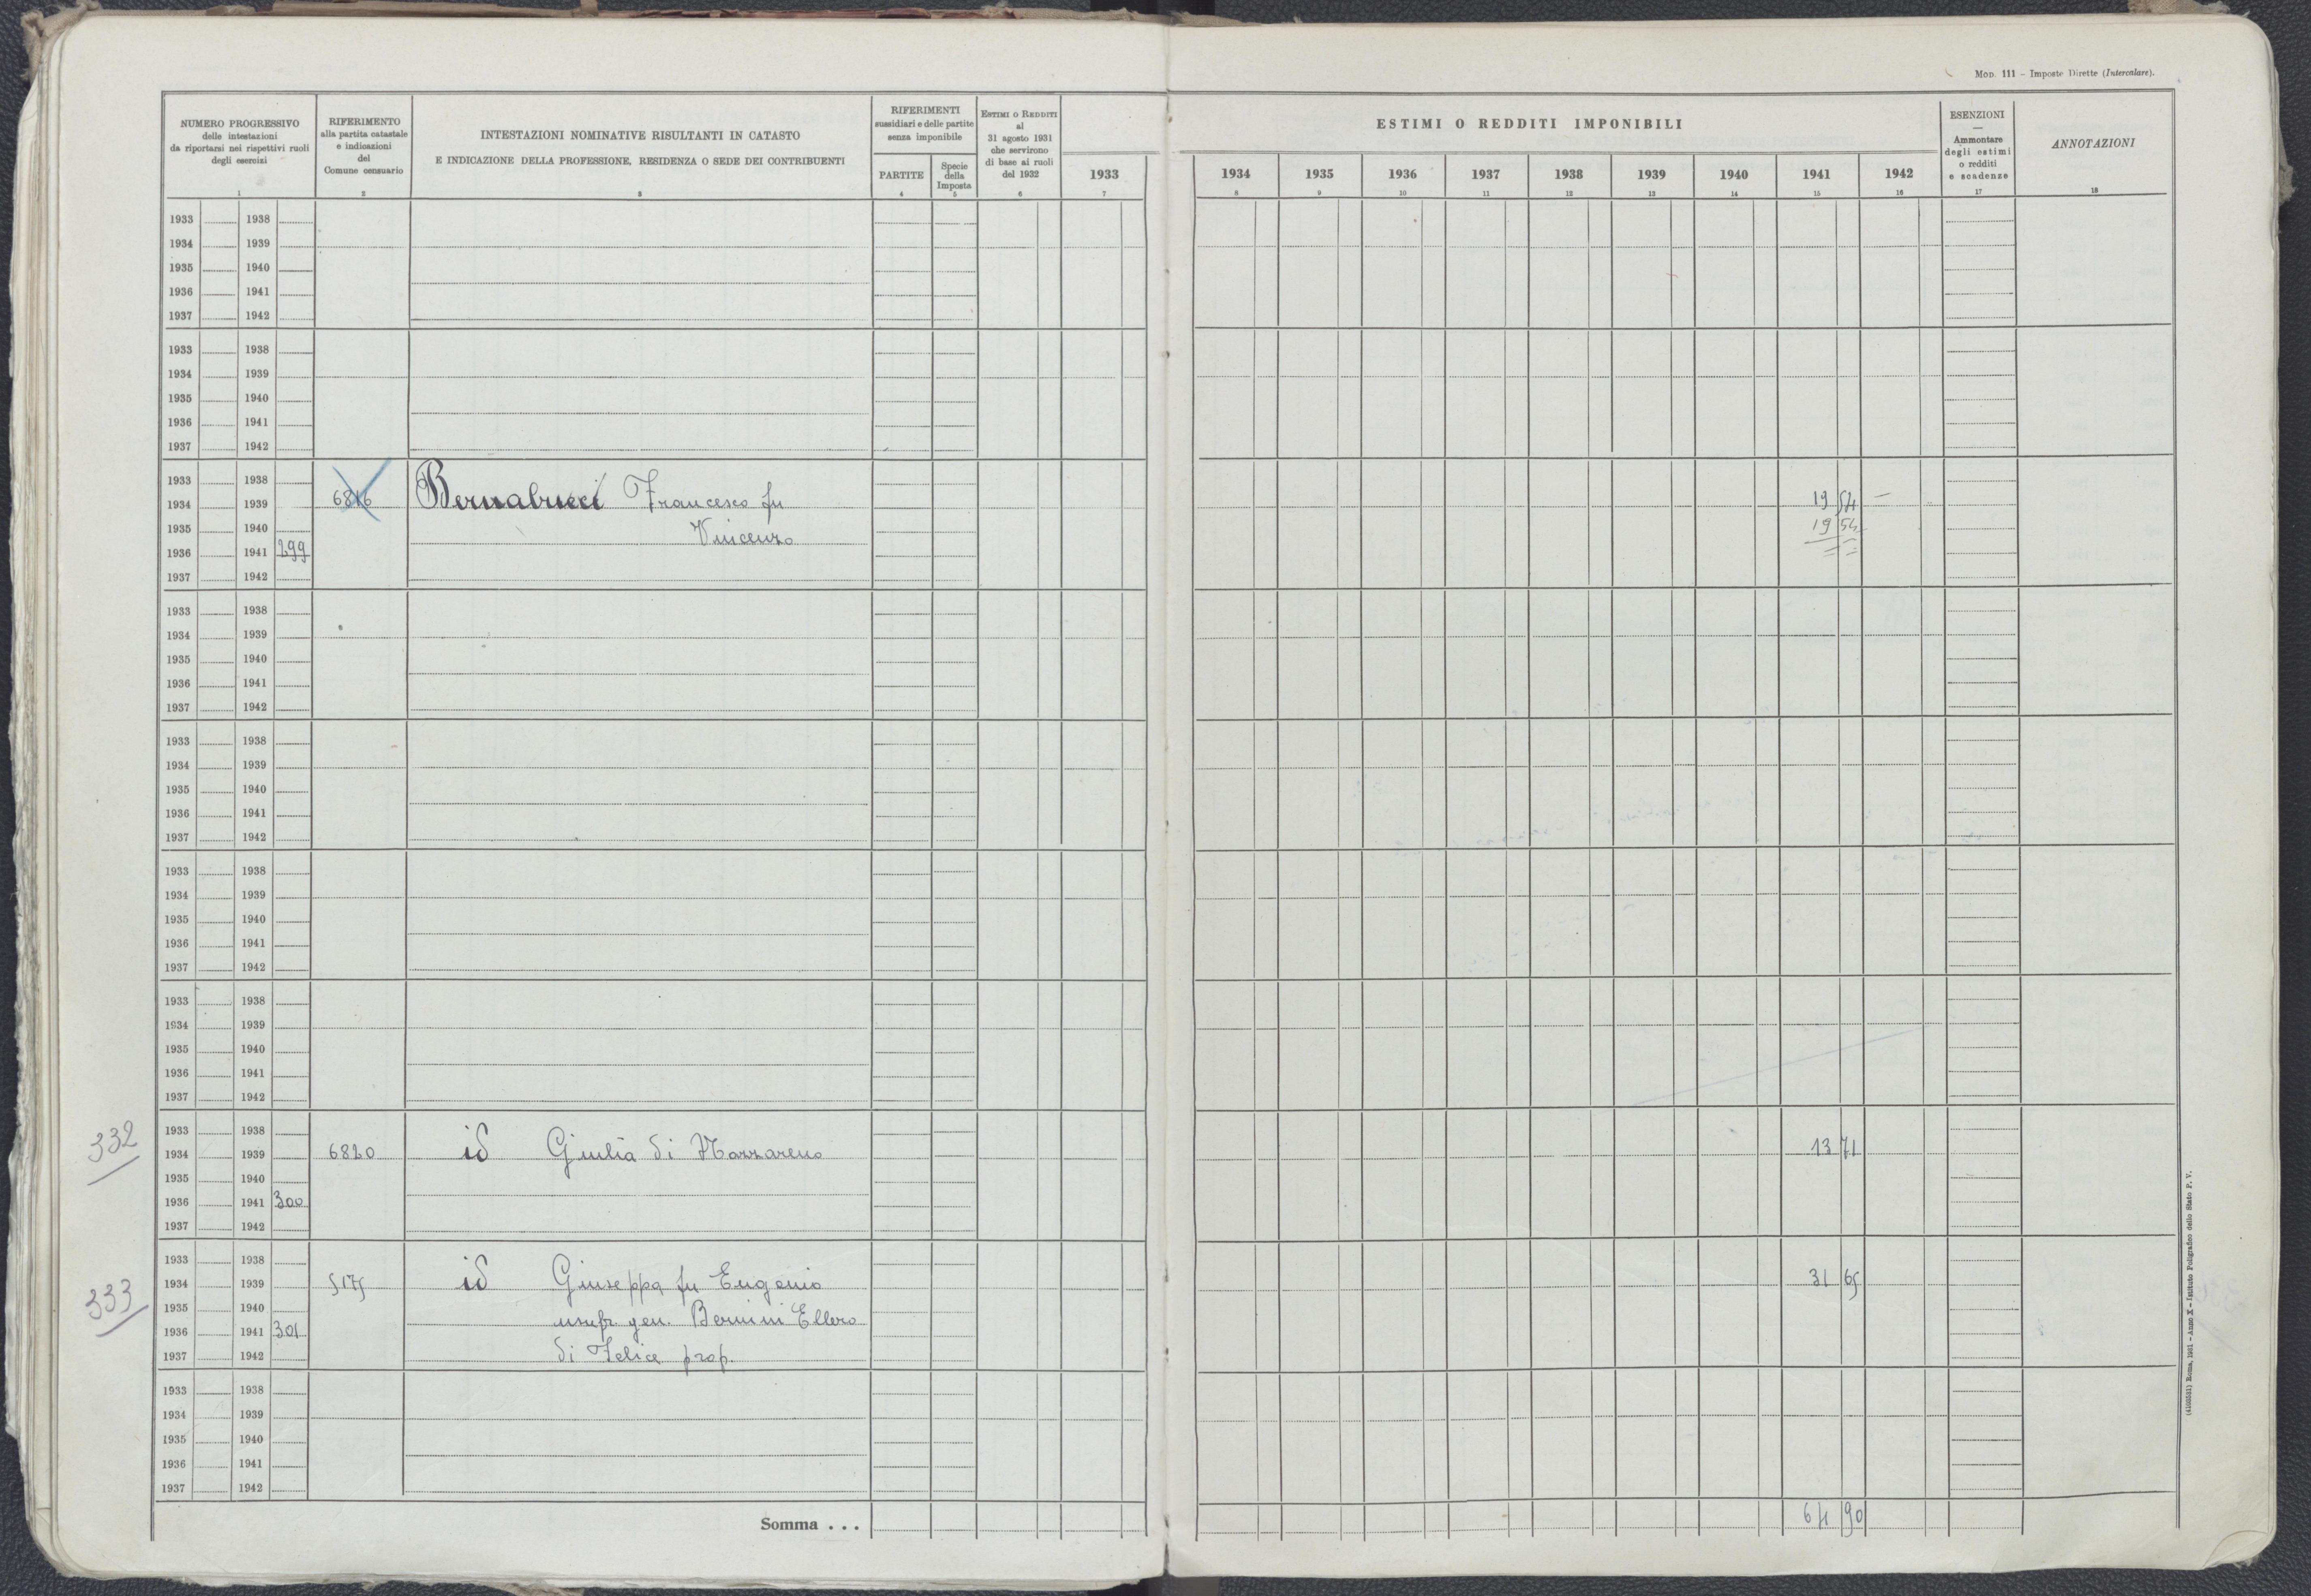 Mod. 111 – Imposte Dirette (Intercalare).
NUMERO PROGRESSIVO
delle intestazioni
da riportarsi nei rispettivi ruoli
degli esercizi
1
RIFERIMENTO
alla partita catastale
e indicazioni
del
Comune censuario
2
INTESTAZIONI NOMINATIVE RISULTANTI IN CATASTO
E INDICAZIONE DELLA PROFESSIONE, RESIDENZA O SEDE DEI CONTRIBUENTI
3
RIFERIMENTI
sussidiari e delle partite
senza imponibile
PARTITE
4
Specie
della
Imposta
5
Estimi o Redditi
al
31 agosto 1931
che servirono
di base ai ruoli
del 1932
6
1933
7
ESTIMI O REDDITI IMPONIBILI
1934 1935 1936 1937 1938 1939 1940 1941 1942
8 9 10 11 12 13 14 15 16
ESENZIONI
—
Ammontare
degli estimi
o redditi
e scadenze
17
ANNOTAZIONI
18
1933 1938
1934 1939
1935 1940
1936 1941
1937 1942
1933 1938
1934 1939
1935 1940
1936 1941
1937 1942
1933 1938
1934 1939 6816 Bernabucci Francesco fu 19 54 –
1935 1940 Vincenzo 19 54
1936 1941 299
1937 1942
1933 1938
1934 1939
1935 1940
1936 1941
1937 1942
1933 1938
1934 1939
1935 1940
1936 1941
1937 1942
1933 1938
1934 1939
1935 1940
1936 1941
1937 1942
1933 1938
1934 1939
1935 1940
1936 1941
1937 1942
332
1933 1938
1934 1939 6820 id Giulia di Nazzareno 13 71
1935 1940
1936 1941 300
1937 1942
333
1933 1938
1934 1939 5175 id Giuseppa fu Eugenio 31 65
1935 1940
1936 1941 301 usufr. gen. Bernini Ellero
1937 1942 di Felice prop.
1933 1938
1934 1939
1935 1940
1936 1941
1937 1942
Somma . . . 64 90
(4103531) Roma, 1931 – Anno X – Istituto Poligrafico dello Stato P. V.